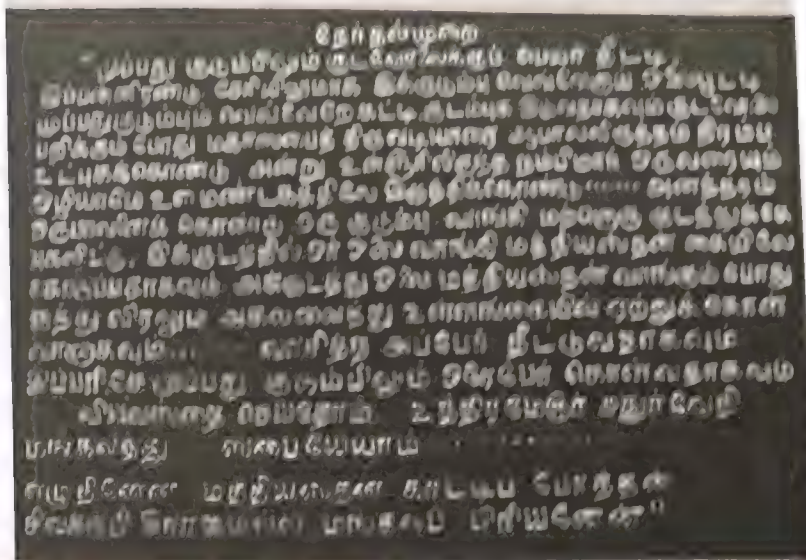 தேர்தல்முறை
"முப்பது குடும்பிலும் குடவோலைக்கும் பெயர் தீட்டி
இப்பன்னிரண்டு சேரியிலுமாக இக்குடும்பு வெவ்வேறே
முப்பது குடும்பும் வெவ்வேறே கட்டி குடம்புக
பறிக்கும் போது மகாசபைத் திருவடியாரை நிரம்ப
உட்புகக்கொண்டு அன்று உள்ளூரிலிருந்த நம்பிமார் ஒருவரையும்
ஒழியாமே உள் மண்டகத்திலே இருத்திக்கொண்டு ...... அனந்தரம்
கொண்டு ஒரு குடும்பு வாங்கி மற்றொரு குடத்துக்கே
இக்குடத்தில் ஓர் ஓலை வாங்கி மத்தியஸ்தன் கையிலே
அக்குடத்து ஓலை மத்தியஸ்தன் வாங்கும் போது
ஐந்து விரலும் அகலவைத்து உள்ளங்கையில் ஏற்றுக் கொள்
வானாகவும் .... வாசித்த அப்பேர் தீட்டுவதாகவும்
இப்பரிசே முப்பது குடும்பிலும் ஒரோபேர் கொள்வதாகவும்
வியவஸ்தை செய்தோம் உத்திரமேரு சதுர்வேதி
மங்கலத்து ஸபையோம் ..........
எழுதினேன் மத்தியஸ்தன் காடடிப் போத்தன்
சிவக்குறி ராஜமல்ல மங்கலப் பிரியனேன்"